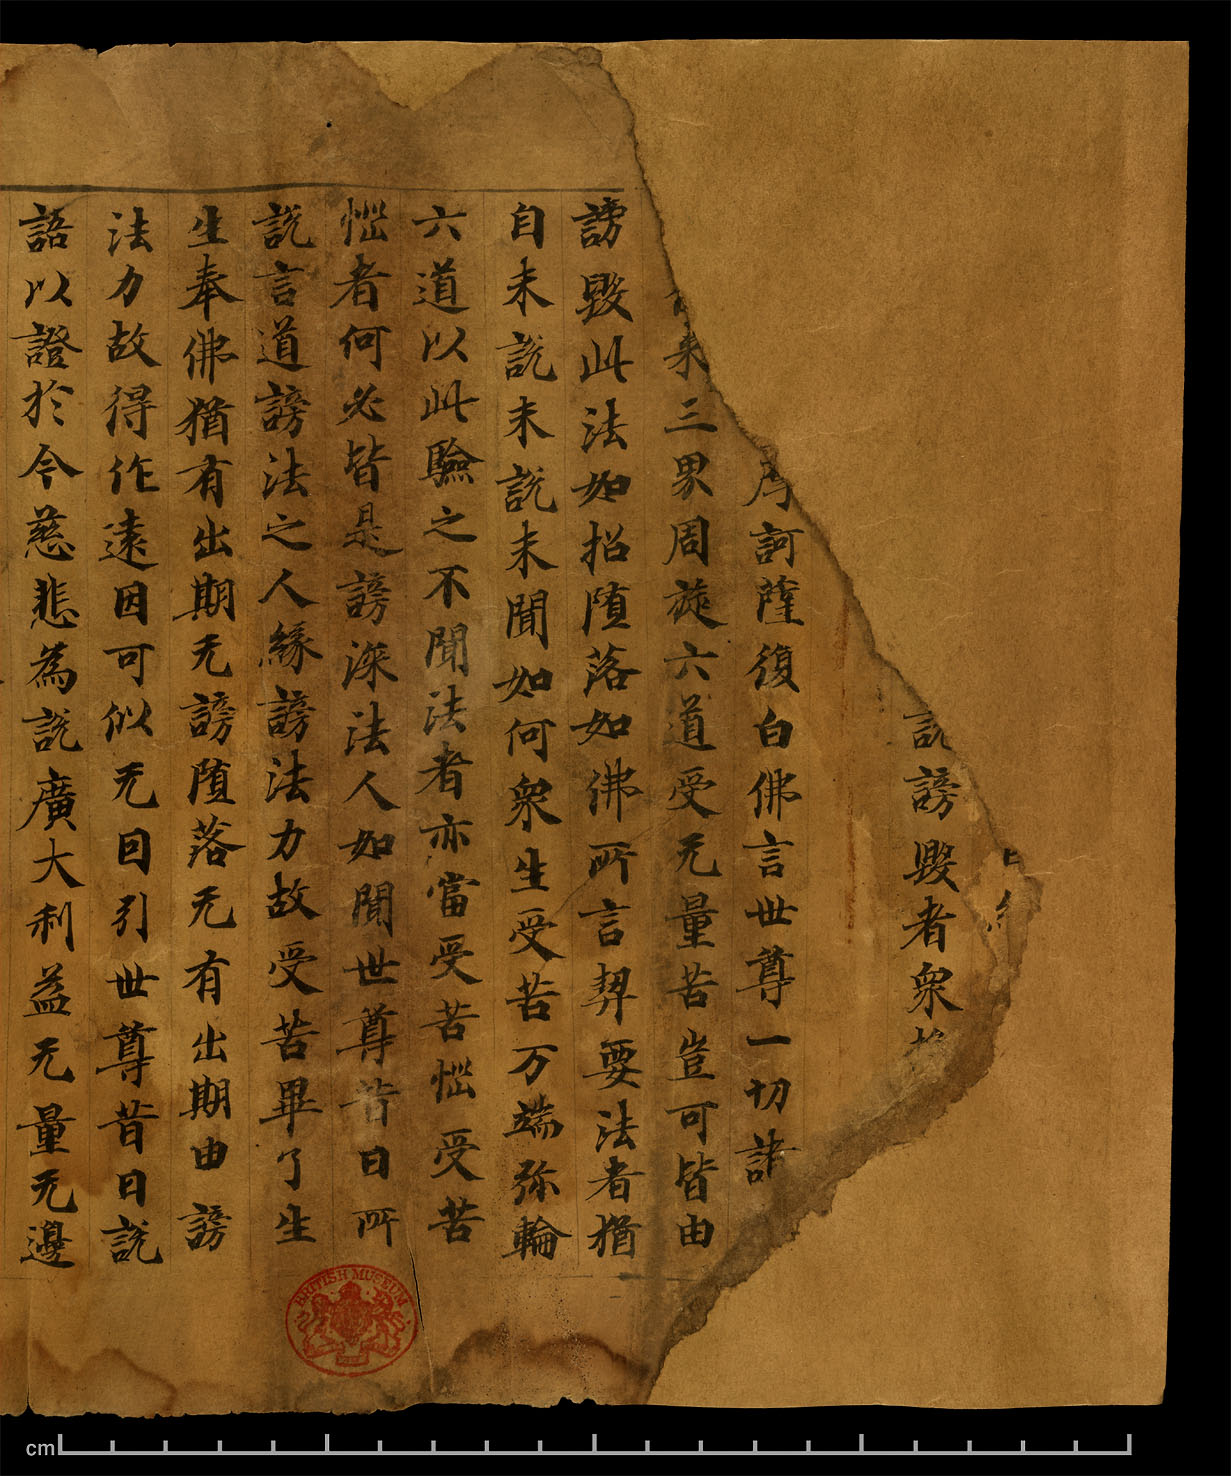 謗毀者衆
摩訶薩復白佛言世尊一切諸
来三界周旋六道受无量苦豈可皆由
謗毀此法如招墮落如佛所言契要法者猶
自未說未說未聞如何衆生受苦万端弥輪
六道以此驗之不聞法者亦當受苦惱受苦
惱者何必皆是謗深法人如聞世尊昔日所
說言道謗法之人緣謗法力故受苦畢了生
生奉佛猶有出期无謗墮落无有出期由謗
法力故得作遠因可似无回引世尊昔日說
語以證於今慈悲為說廣大利益无量无邊
BRITISH MUSEUM
cm